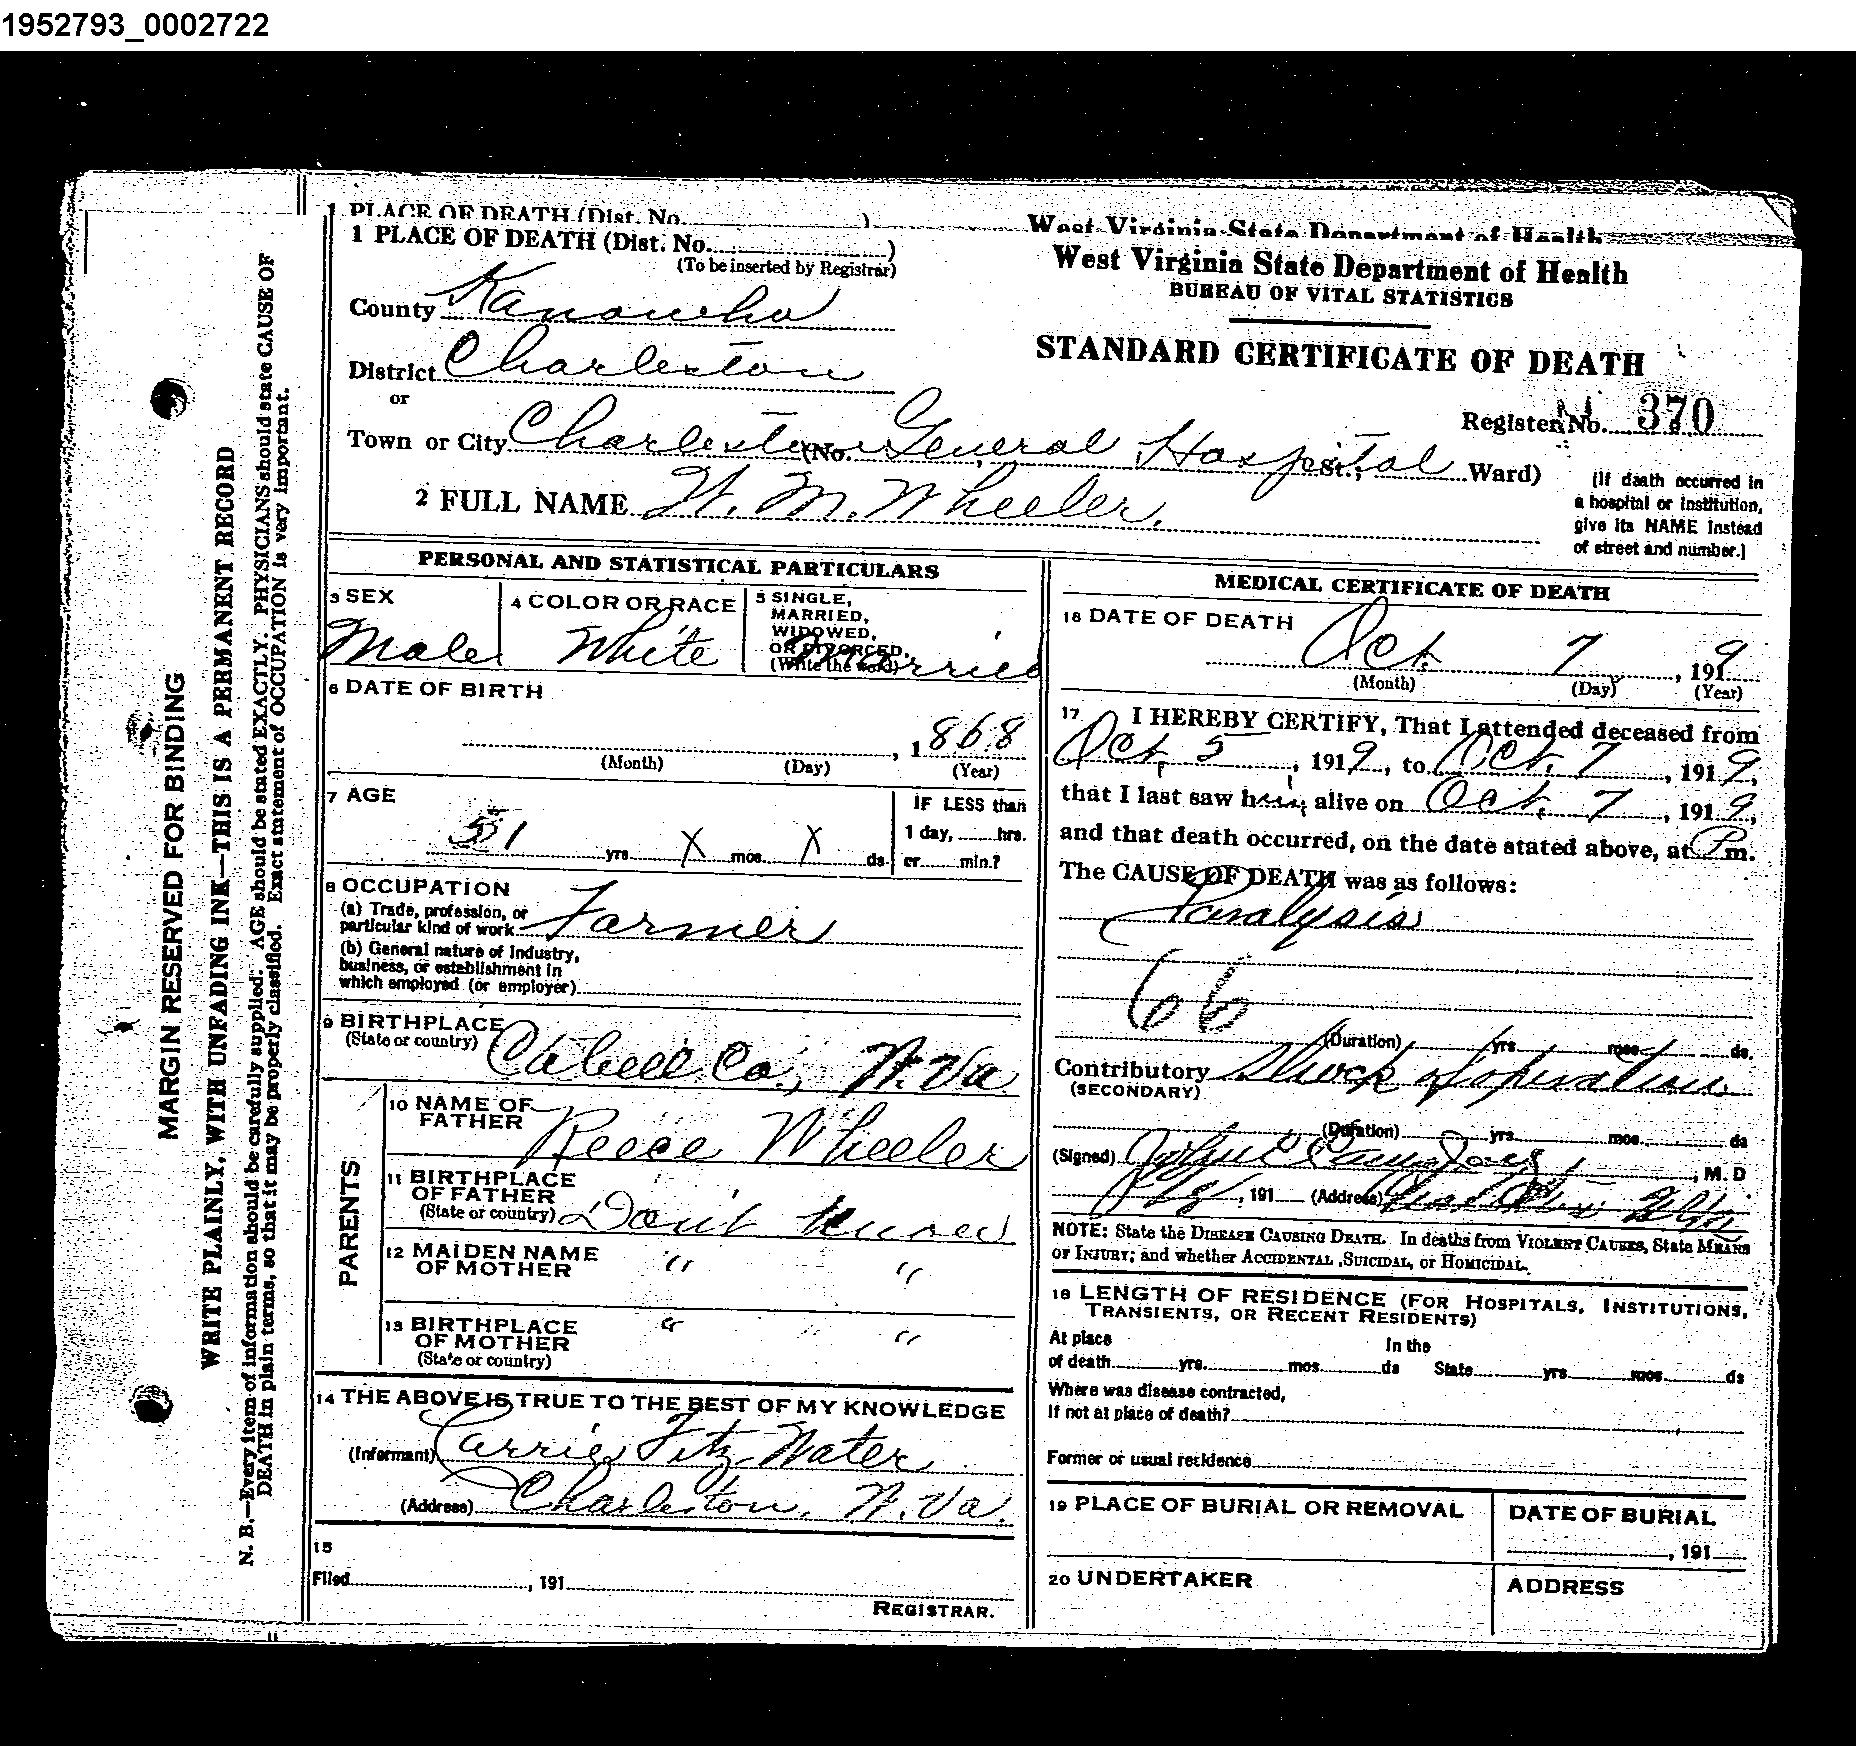 1952793_0002722
1 PLACE OF DEATH (Dist. No. )
West Virginia State Department of Health
1 PLACE OF DEATH (Dist. No. )
(To be inserted by Registrar)
County Kanawha
District Charleston
or
Town or City Charleston (No. General Hospital St.; Ward)
2 FULL NAME W. M. Wheeler.
West Virginia State Department of Health
BUREAU OF VITAL STATISTICS
STANDARD CERTIFICATE OF DEATH
Register No. 370
(If death occurred in
a hospital or institution,
give its NAME instead
of street and number.)
MARGIN RESERVED FOR BINDING
WRITE PLAINLY, WITH UNFADING INK—THIS IS A PERMANENT RECORD
N. B.—Every item of information should be carefully supplied. AGE should be stated EXACTLY. PHYSICIANS should state CAUSE OF
DEATH in plain terms, so that it may be properly classified. Exact statement of OCCUPATION is very important.
PERSONAL AND STATISTICAL PARTICULARS
3 SEX
Male
4 COLOR OR RACE
White
5 SINGLE,
MARRIED,
WIDOWED,
OR DIVORCED,
(Write the word)
Married
6 DATE OF BIRTH
, 1868
(Month) (Day) (Year)
7 AGE
51 yrs. X mos. X ds.
IF LESS than
1 day, hrs.
or min.?
8 OCCUPATION
(a) Trade, profession, or
particular kind of work Farmer
(b) General nature of industry,
business, or establishment in
which employed (or employer)
9 BIRTHPLACE
(State or country) Cabell Co., W. Va
PARENTS
10 NAME OF
FATHER Reece Wheeler
11 BIRTHPLACE
OF FATHER
(State or country) Don't know
12 MAIDEN NAME
OF MOTHER " "
13 BIRTHPLACE
OF MOTHER " "
(State or country)
14 THE ABOVE IS TRUE TO THE BEST OF MY KNOWLEDGE
(Informant) Carrie Fitz Water
(Address) Charleston, W. Va.
15
Filed , 191
REGISTRAR.
MEDICAL CERTIFICATE OF DEATH
16 DATE OF DEATH
Oct. 7, 1919
(Month) (Day) (Year)
17 I HEREBY CERTIFY, That I attended deceased from
Oct, 5, 1919, to Oct. 7, 1919,
that I last saw him alive on Oct. 7, 1919,
and that death occurred, on the date stated above, at P m.
The CAUSE OF DEATH was as follows:
Paralysis
66
(Duration) yrs. mos. ds.
Contributory Shock of operation
(SECONDARY)
(Duration) yrs. mos. ds
(Signed) , M. D
, 191 (Address)
NOTE: State the DISEASE CAUSING DEATH. In deaths from VIOLENT CAUSES, State MEANS
OF INJURY; and whether ACCIDENTAL, SUICIDAL, or HOMICIDAL.
18 LENGTH OF RESIDENCE (FOR HOSPITALS, INSTITUTIONS,
TRANSIENTS, OR RECENT RESIDENTS)
At place In the
of death yrs. mos. ds State yrs. mos. ds
Where was disease contracted,
If not at place of death?
Former or usual residence
19 PLACE OF BURIAL OR REMOVAL
DATE OF BURIAL
, 191
20 UNDERTAKER
ADDRESS